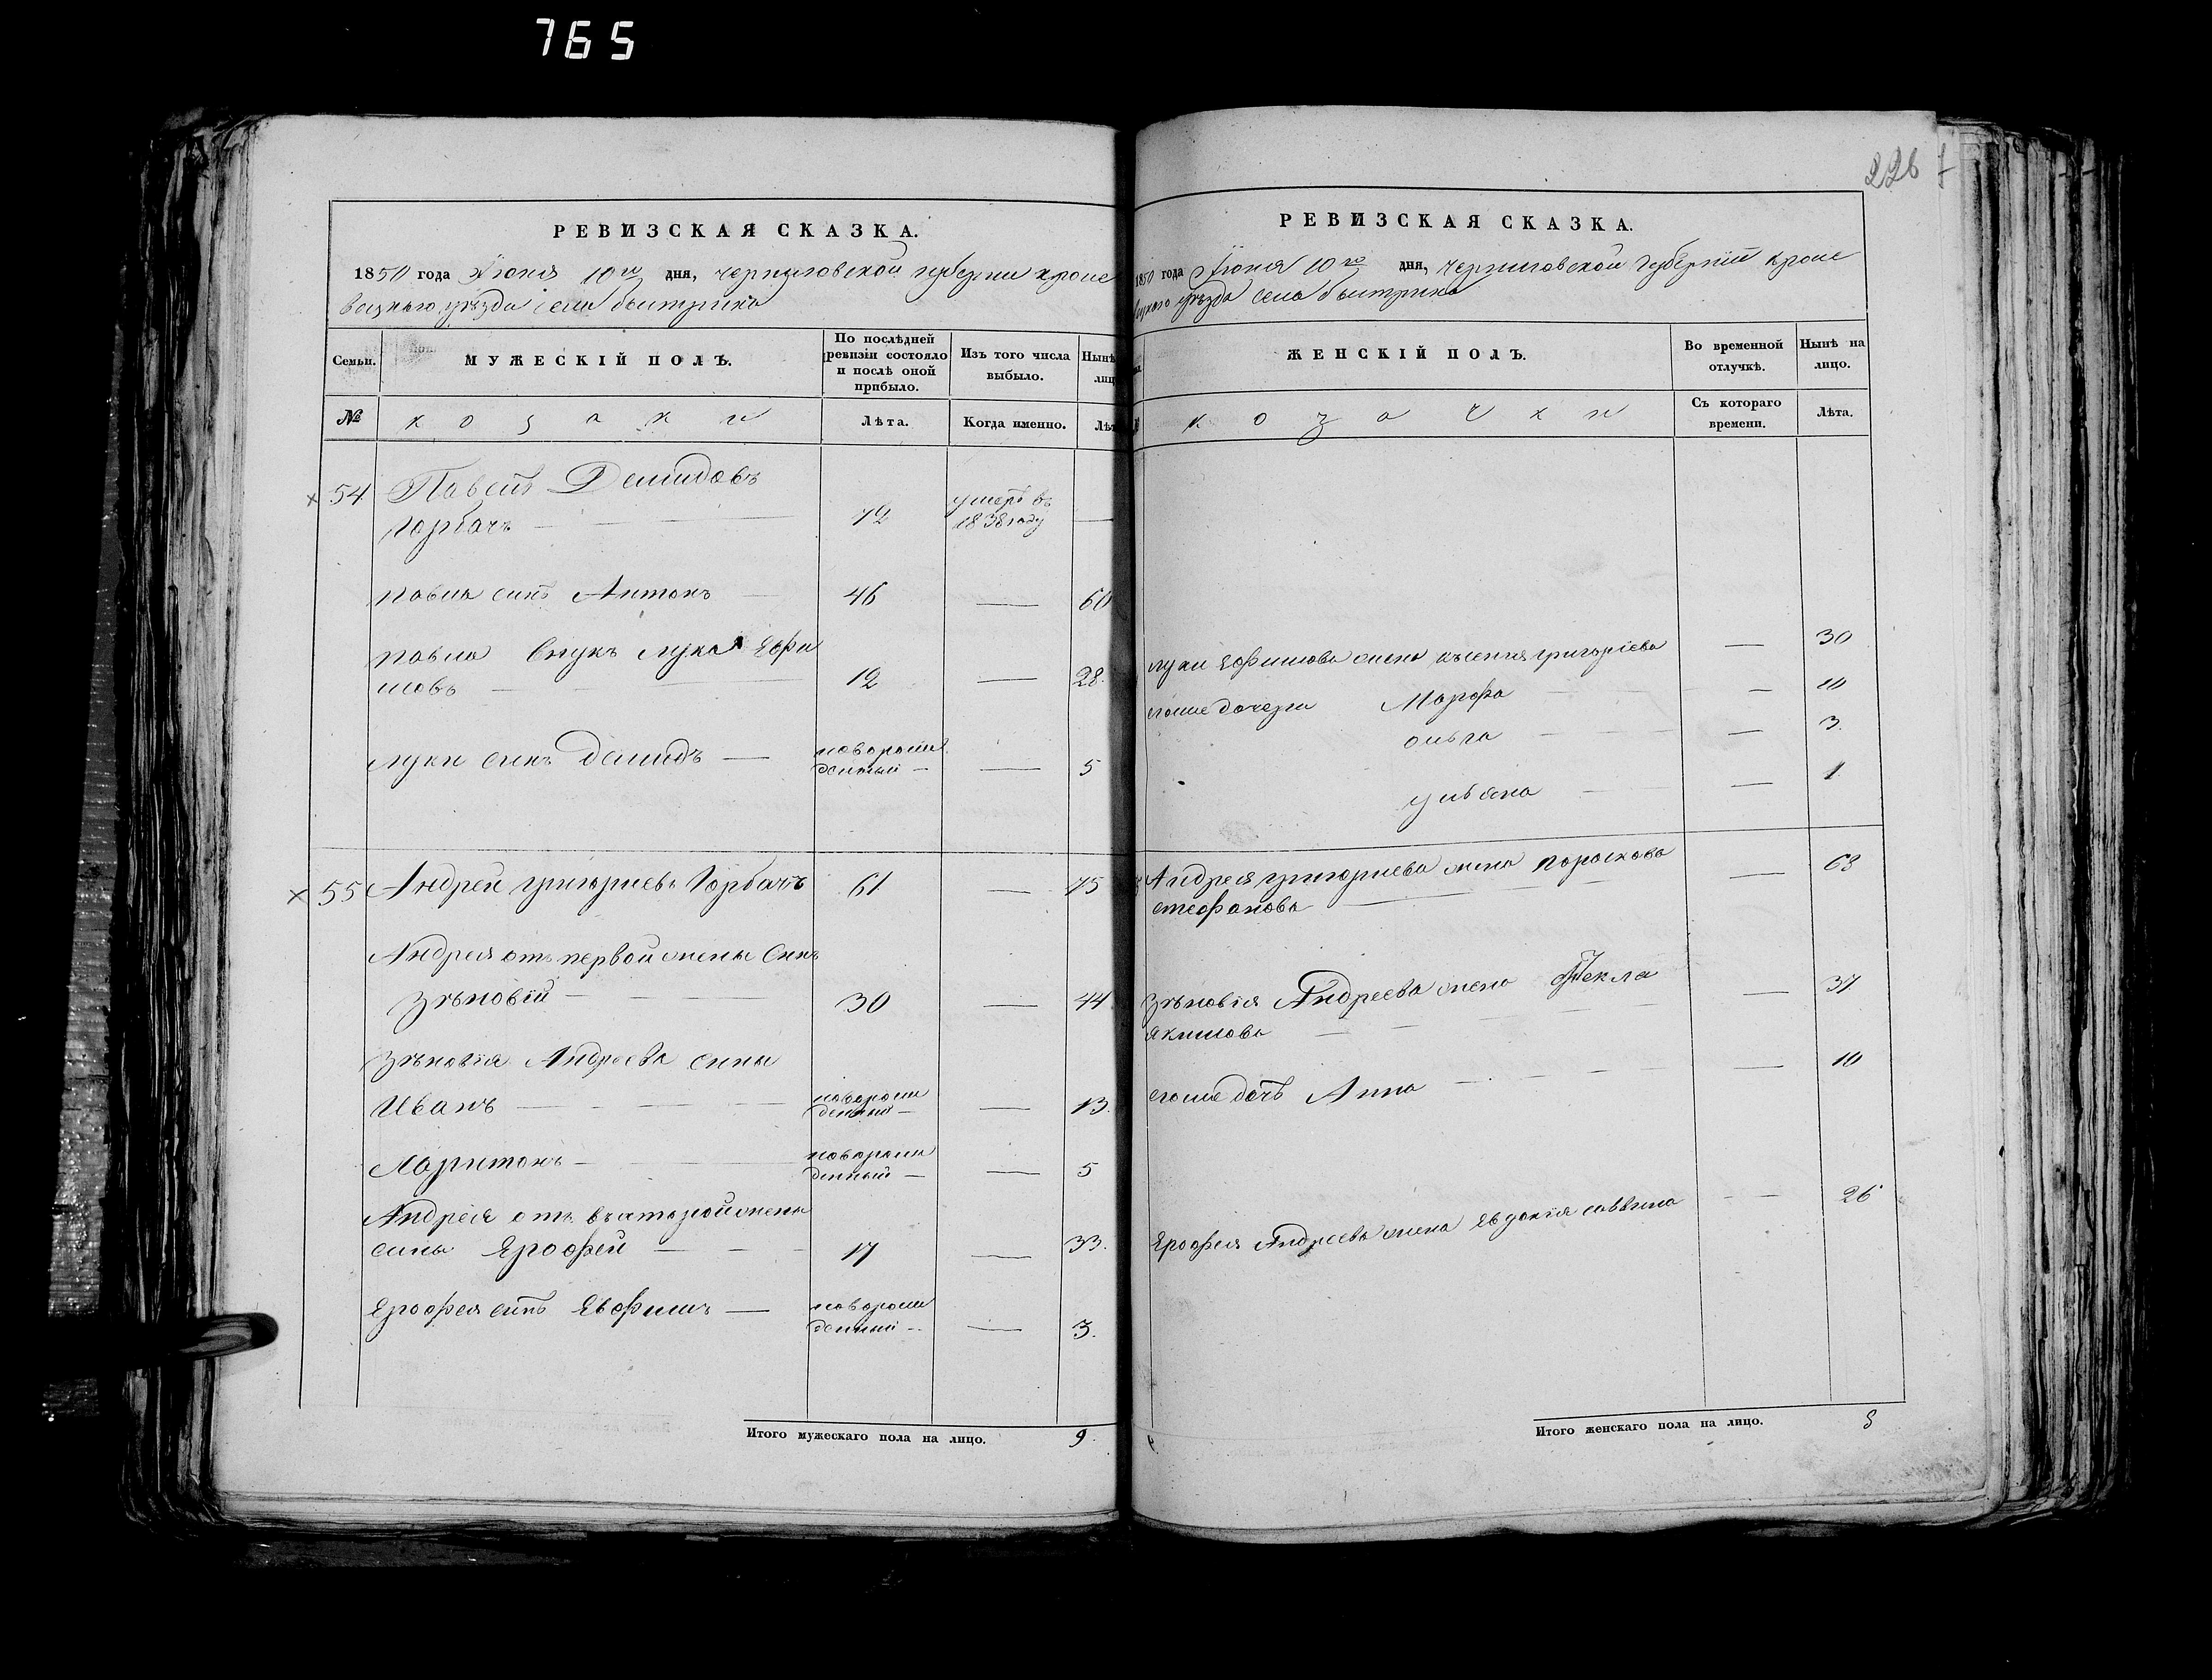 765
226
РЕВИЗСКАЯ СКАЗКА.
1850 года Іюня 10го дня, черниговской губернии кроле
вецкаго уѣзда села быстрика
Семьи.
МУЖЕСКІЙ ПОЛЪ.
По послѣдней
ревизіи состояло
и послѣ оной
прибыло.
Изъ того числа
выбыло.
Нынѣ
лиц
№
козаки
Лѣта.
Когда именно.
Лѣт
54 Павелъ Демидовъ
Горбачъ — 72 умеръ въ 1838 году —
павла синъ Антонъ — 46 — 60
павла внукъ лука Ефи
мовъ — 12 — 28.
луки синъ демидъ — новорож
денный — — 5
55 Андрей григориевъ Горбачъ 61 — 75
Андрея отъ первой жены синъ
Зѣновій — 30 — 44
Зѣновія Андреева сины
Иванъ — новорож
денный — — 13.
Харитонъ — новорож
денный — — 5
Андрея отъ вътарой жены
сины Ерофей — 17 — 33.
Ерофея синъ Евфимъ — новорож
денный — — 3.
Итого мужескаго пола на лицо. 9.
РЕВИЗСКАЯ СКАЗКА.
1850 года Іюня 10го дня, черниговской губерніи кроле
вецкаго уѣзда села быстрика
ЖЕНСКІЙ ПОЛЪ.
Во временной
отлучкѣ.
Нынѣ на
лицо.
козачки
Съ котораго
времени.
Лѣта.
луки Ефимова жена късения григоріева — 30
егоже дочери Марфа — — 10
ольга — — 3.
ульяна — — 1
Андрея григориева жена пораскова
стефанова — — 63
Зѣновія Андреева жена Текла
якимова — — 37
егоже дочь Анна — — 10
Ерофея Андреева жена Евдокія саввина — — 26
Итого женскаго пола на лицо. 8